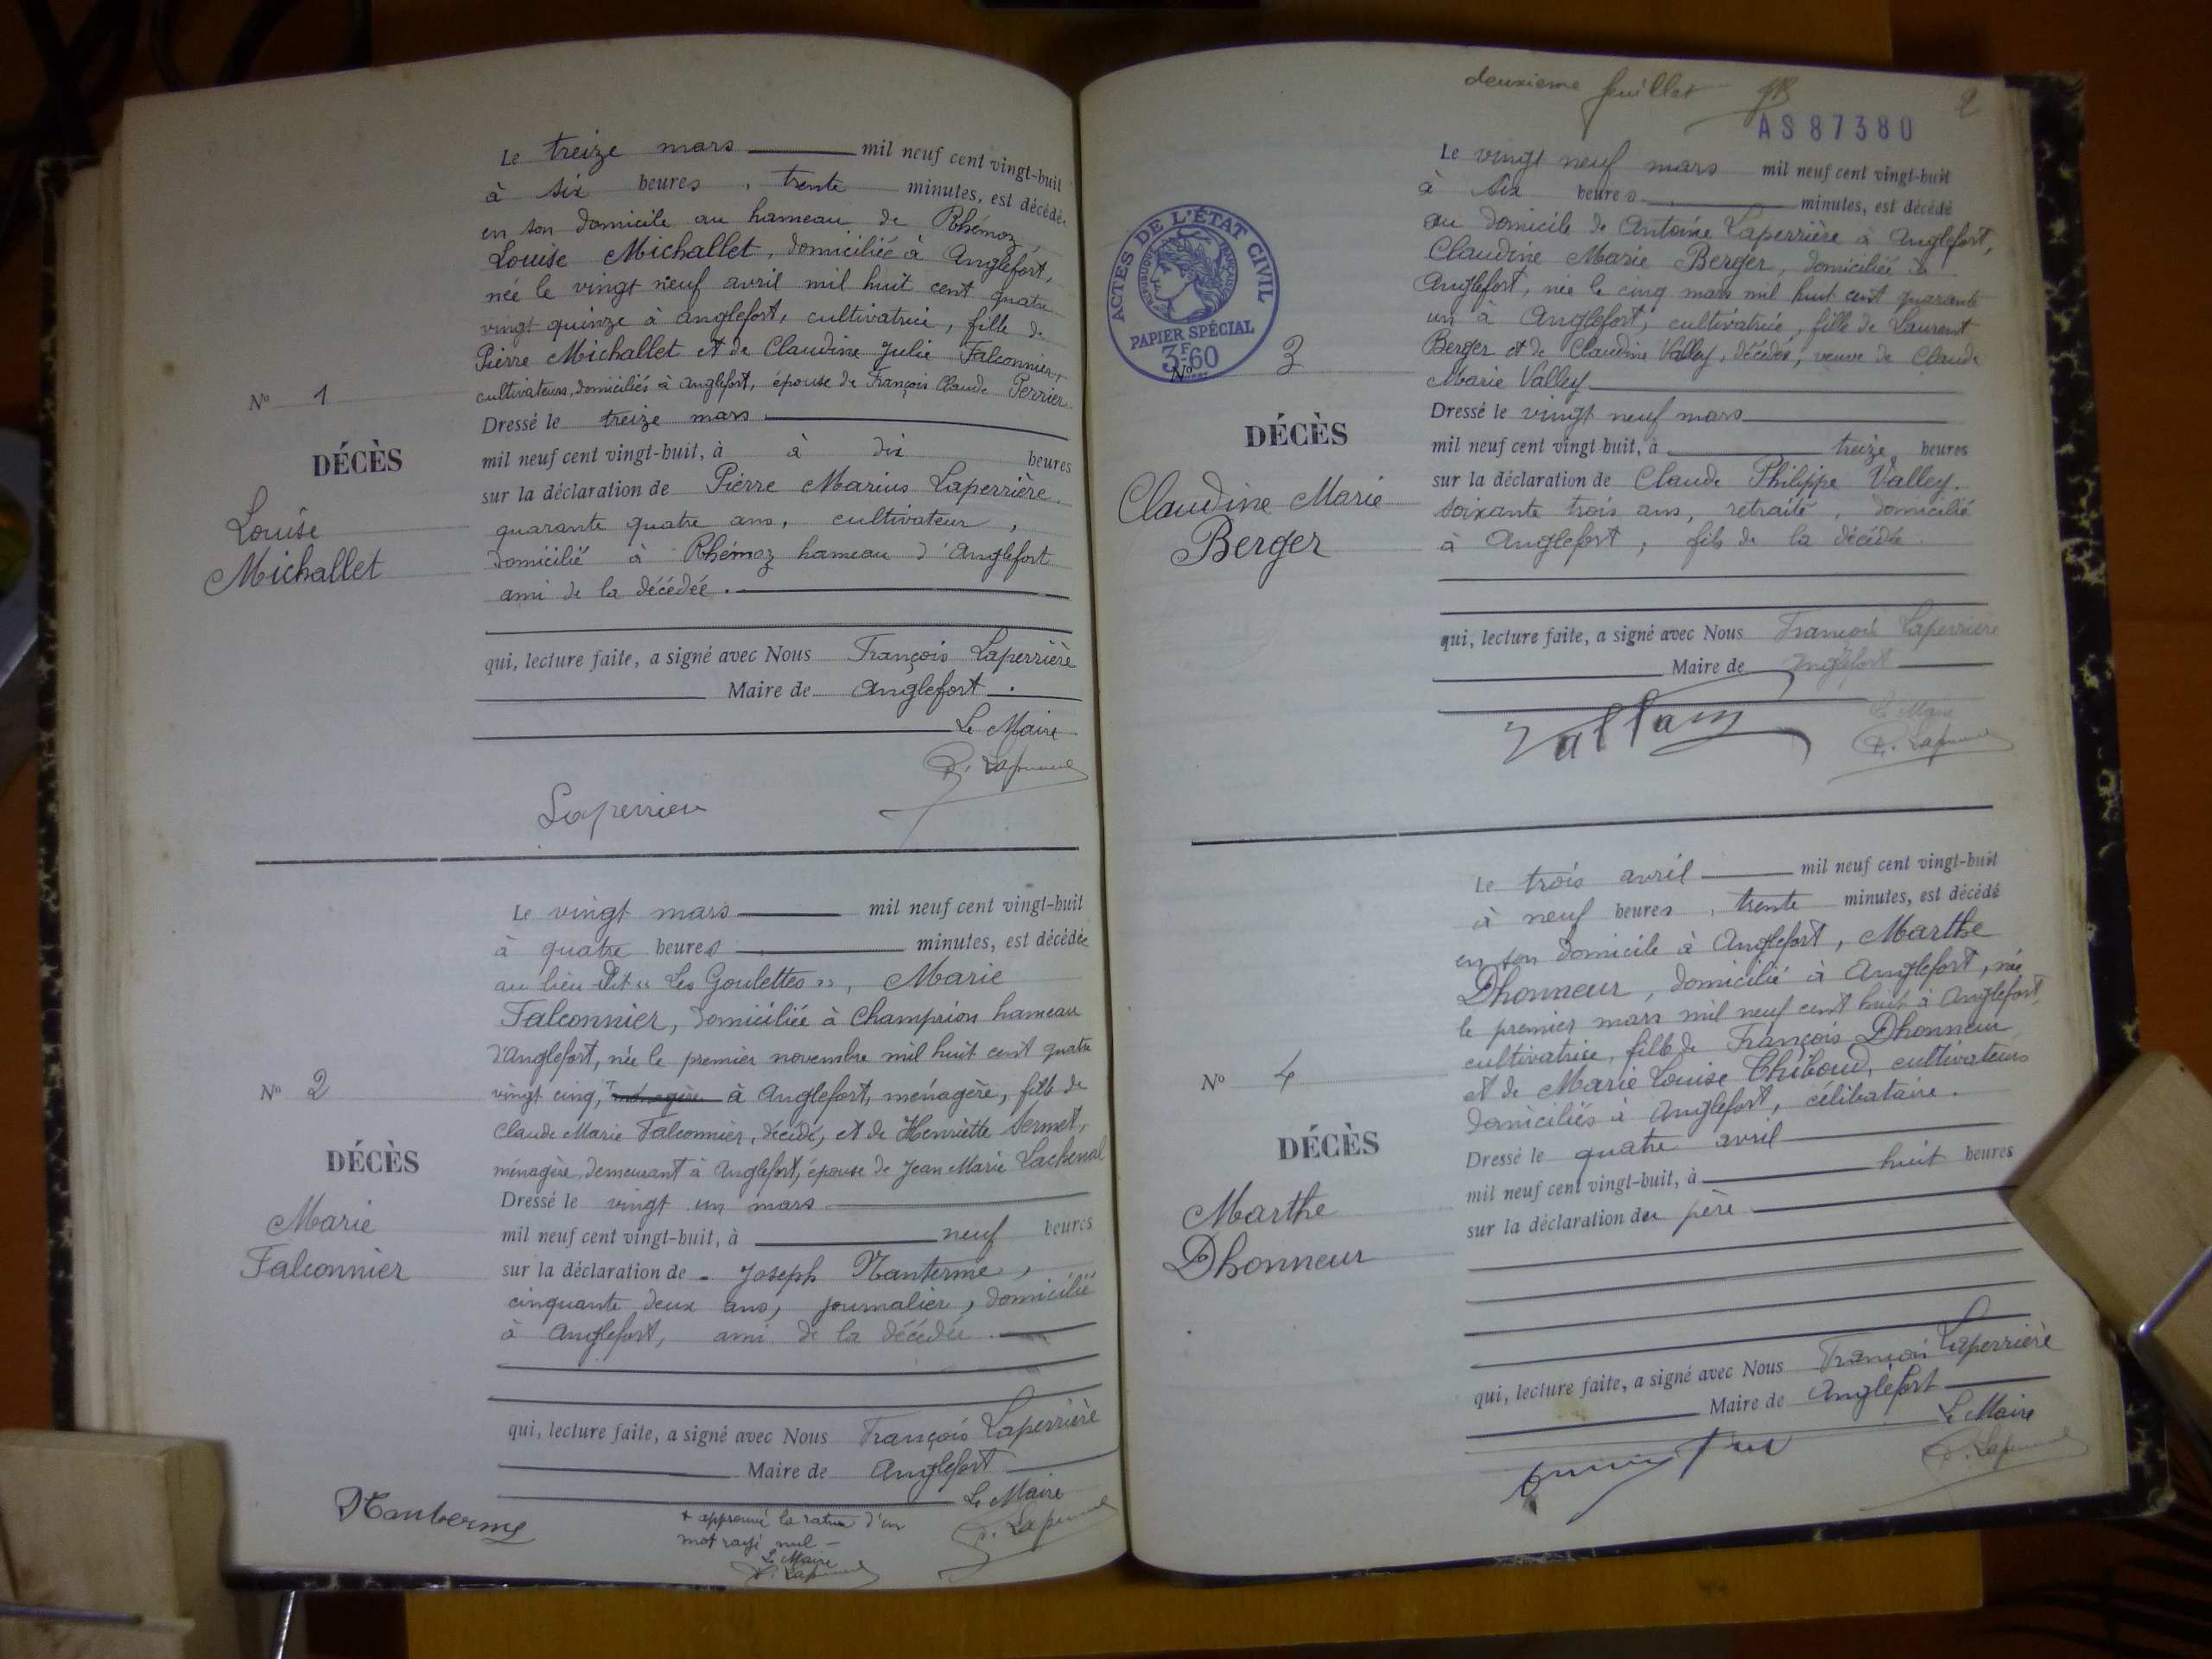 Le treize mars mil neuf cent vingt-huit
à six heures, trente minutes, est décédée
en son domicile au hameau de Rhémoz,
Louise Michallet, domiciliée à Anglefort,
née le vingt neuf avril mil huit cent quatre
vingt quinze à Anglefort, cultivatrice, fille de
Pierre Michallet et de Claudine Julie Falconnier,
cultivateurs, domiciliés à Anglefort, épouse de François Claude Perrier.
N° 1
DÉCÈS
Louise
Michallet
Dressé le treize mars
mil neuf cent vingt-huit, à à dix heures
sur la déclaration de Pierre Marius Laperrière.
quarante quatre ans, cultivateur,
domicilié à Rhémoz hameau d'Anglefort
ami de la décédée.
qui, lecture faite, a signé avec Nous François Laperrière
Maire de Anglefort.
Le Maire
F. Laperrière
Laperriere
Le vingt mars mil neuf cent vingt-huit
à quatre heures minutes, est décédée
au lieu dit "Les Goulettes", Marie
Falconnier, domiciliée à Champrion hameau
d'Anglefort, née le premier novembre mil huit cent quatre
vingt cinq, ménagère à Anglefort, ménagère, fille de
Claude Marie Falconnier, décédé, et de Henriette Sermet,
ménagère, demeurant à Anglefort, épouse de Jean Marie Lachenal
N° 2
DÉCÈS
Marie
Falconnier
Dressé le vingt un mars
mil neuf cent vingt-huit, à neuf heures
sur la déclaration de Joseph Nanterme,
cinquante deux ans, journalier, domicilié
à Anglefort, ami de la décédée.
qui, lecture faite, a signé avec Nous François Laperrière
Maire de Anglefort
Le Maire
F. Laperrière
Nanterme
+ approuvé la rature d'un
mot rayé nul -
Le Maire
F. Laperrière
deuxieme feuillet
2
AS87380
ACTES DE L'ÉTAT CIVIL
REPUBLIQUE FRANÇAISE
PAPIER SPÉCIAL
3F.60
Le vingt neuf mars mil neuf cent vingt-huit
à six heures minutes, est décédé
au domicile de Antoine Laperrière à Anglefort,
Claudine Marie Berger, domiciliée à
Anglefort, née le cinq mars mil huit cent quarante
un à Anglefort, cultivatrice, fille de Laurent
Berger et de Claudine Valley, décédés, veuve de Claude
Marie Valley
N° 3
DÉCÈS
Claudine Marie
Berger
Dressé le vingt neuf mars
mil neuf cent vingt-huit, à treize heures
sur la déclaration de Claude Philippe Valley.
soixante trois ans, retraité, domicilié
à Anglefort, fils de la décédée.
qui, lecture faite, a signé avec Nous François Laperriere
Maire de Anglefort
Le Maire
F. Laperrière
Le trois avril mil neuf cent vingt-huit
à neuf heures, trente minutes, est décédé
en son domicile à Anglefort, Marthe
Dhonneur, domicilié à Anglefort, née
le premier mars mil neuf cent huit à Anglefort,
cultivatrice, fille de François Dhonneur
et de Marie Louise Chiboud, cultivateurs
domiciliés à Anglefort, célibataire.
N° 4
DÉCÈS
Marthe
Dhonneur
Dressé le quatre avril
mil neuf cent vingt-huit, à huit heures
sur la déclaration du père
qui, lecture faite, a signé avec Nous François Laperrière
Maire de Anglefort
Le Maire
F. Laperrière